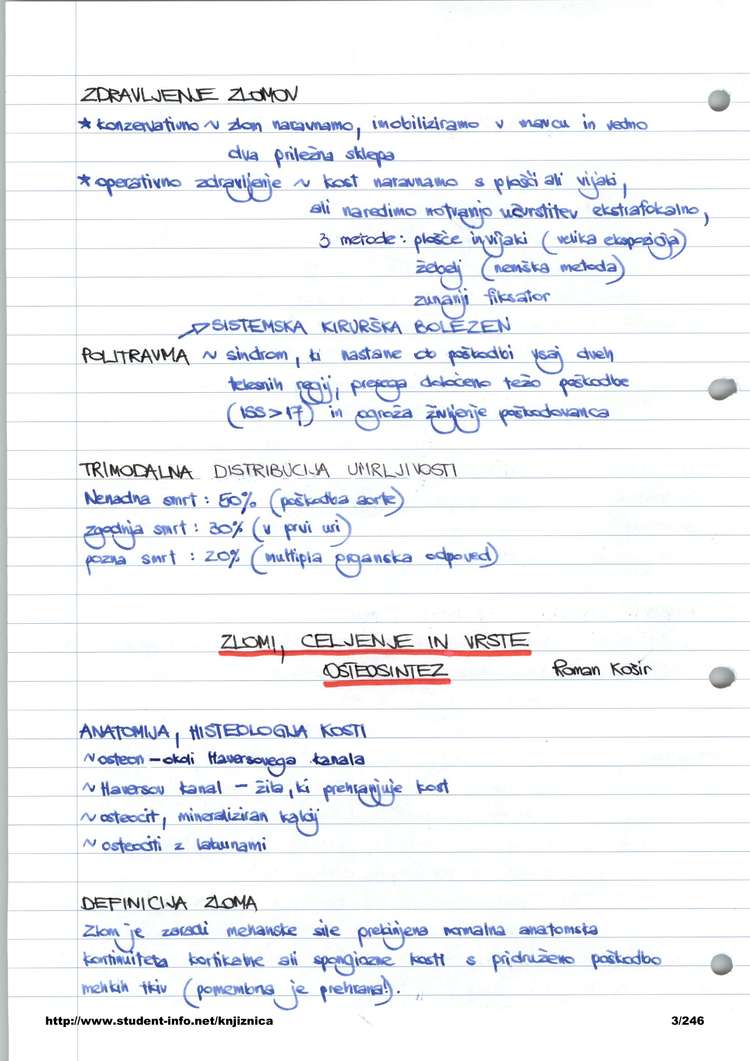 ZDRAVLJENJE ZLOMOV
* konzervativno ~ zlom naravnamo, imobiliziramo v mavcu in vedno
dva priležna sklepa
* operativno zdravljenje ~ kost naravnamo s plošči ali vijaki,
ali naredimo notranjo učvrstitev ekstrafokalno,
3 metode: plošče in vijaki (velika ekspozicija)
žebelj (nemška metoda)
zunanji fiksator
→ SISTEMSKA KIRURŠKA BOLEZEN
POLITRAVMA ~ sindrom, ki nastane ob poškodbi vsaj dveh
telesnih regij, presega določeno težo poškodbe
(ISS > 17) in ogroža življenje poškodovanca
TRIMODALNA DISTRIBUCIJA UMRLJIVOSTI
Nenadna smrt: 50% (poškodba aorte)
zgodnja smrt: 30% (v prvi uri)
pozna smrt: 20% (multipla organska odpoved)
ZLOMI, CELJENJE IN VRSTE
OSTEOSINTEZ Roman Košir
ANATOMIJA, HISTEOLOGIJA KOSTI
~ osteon - okoli Haversovega kanala
~ Haversov kanal - žila, ki prehranjuje kost
~ osteocit, mineraliziran kalcij
~ osteociti z lakunami
DEFINICIJA ZLOMA
Zlom je zaradi mehanske sile prekinjena normalna anatomska
kontinuiteta kortikalne ali spongiozne kosti s pridruženo poškodbo
mehkih tkiv (pomembna je prehrana!).
http://www.student-info.net/knjiznica 3/246